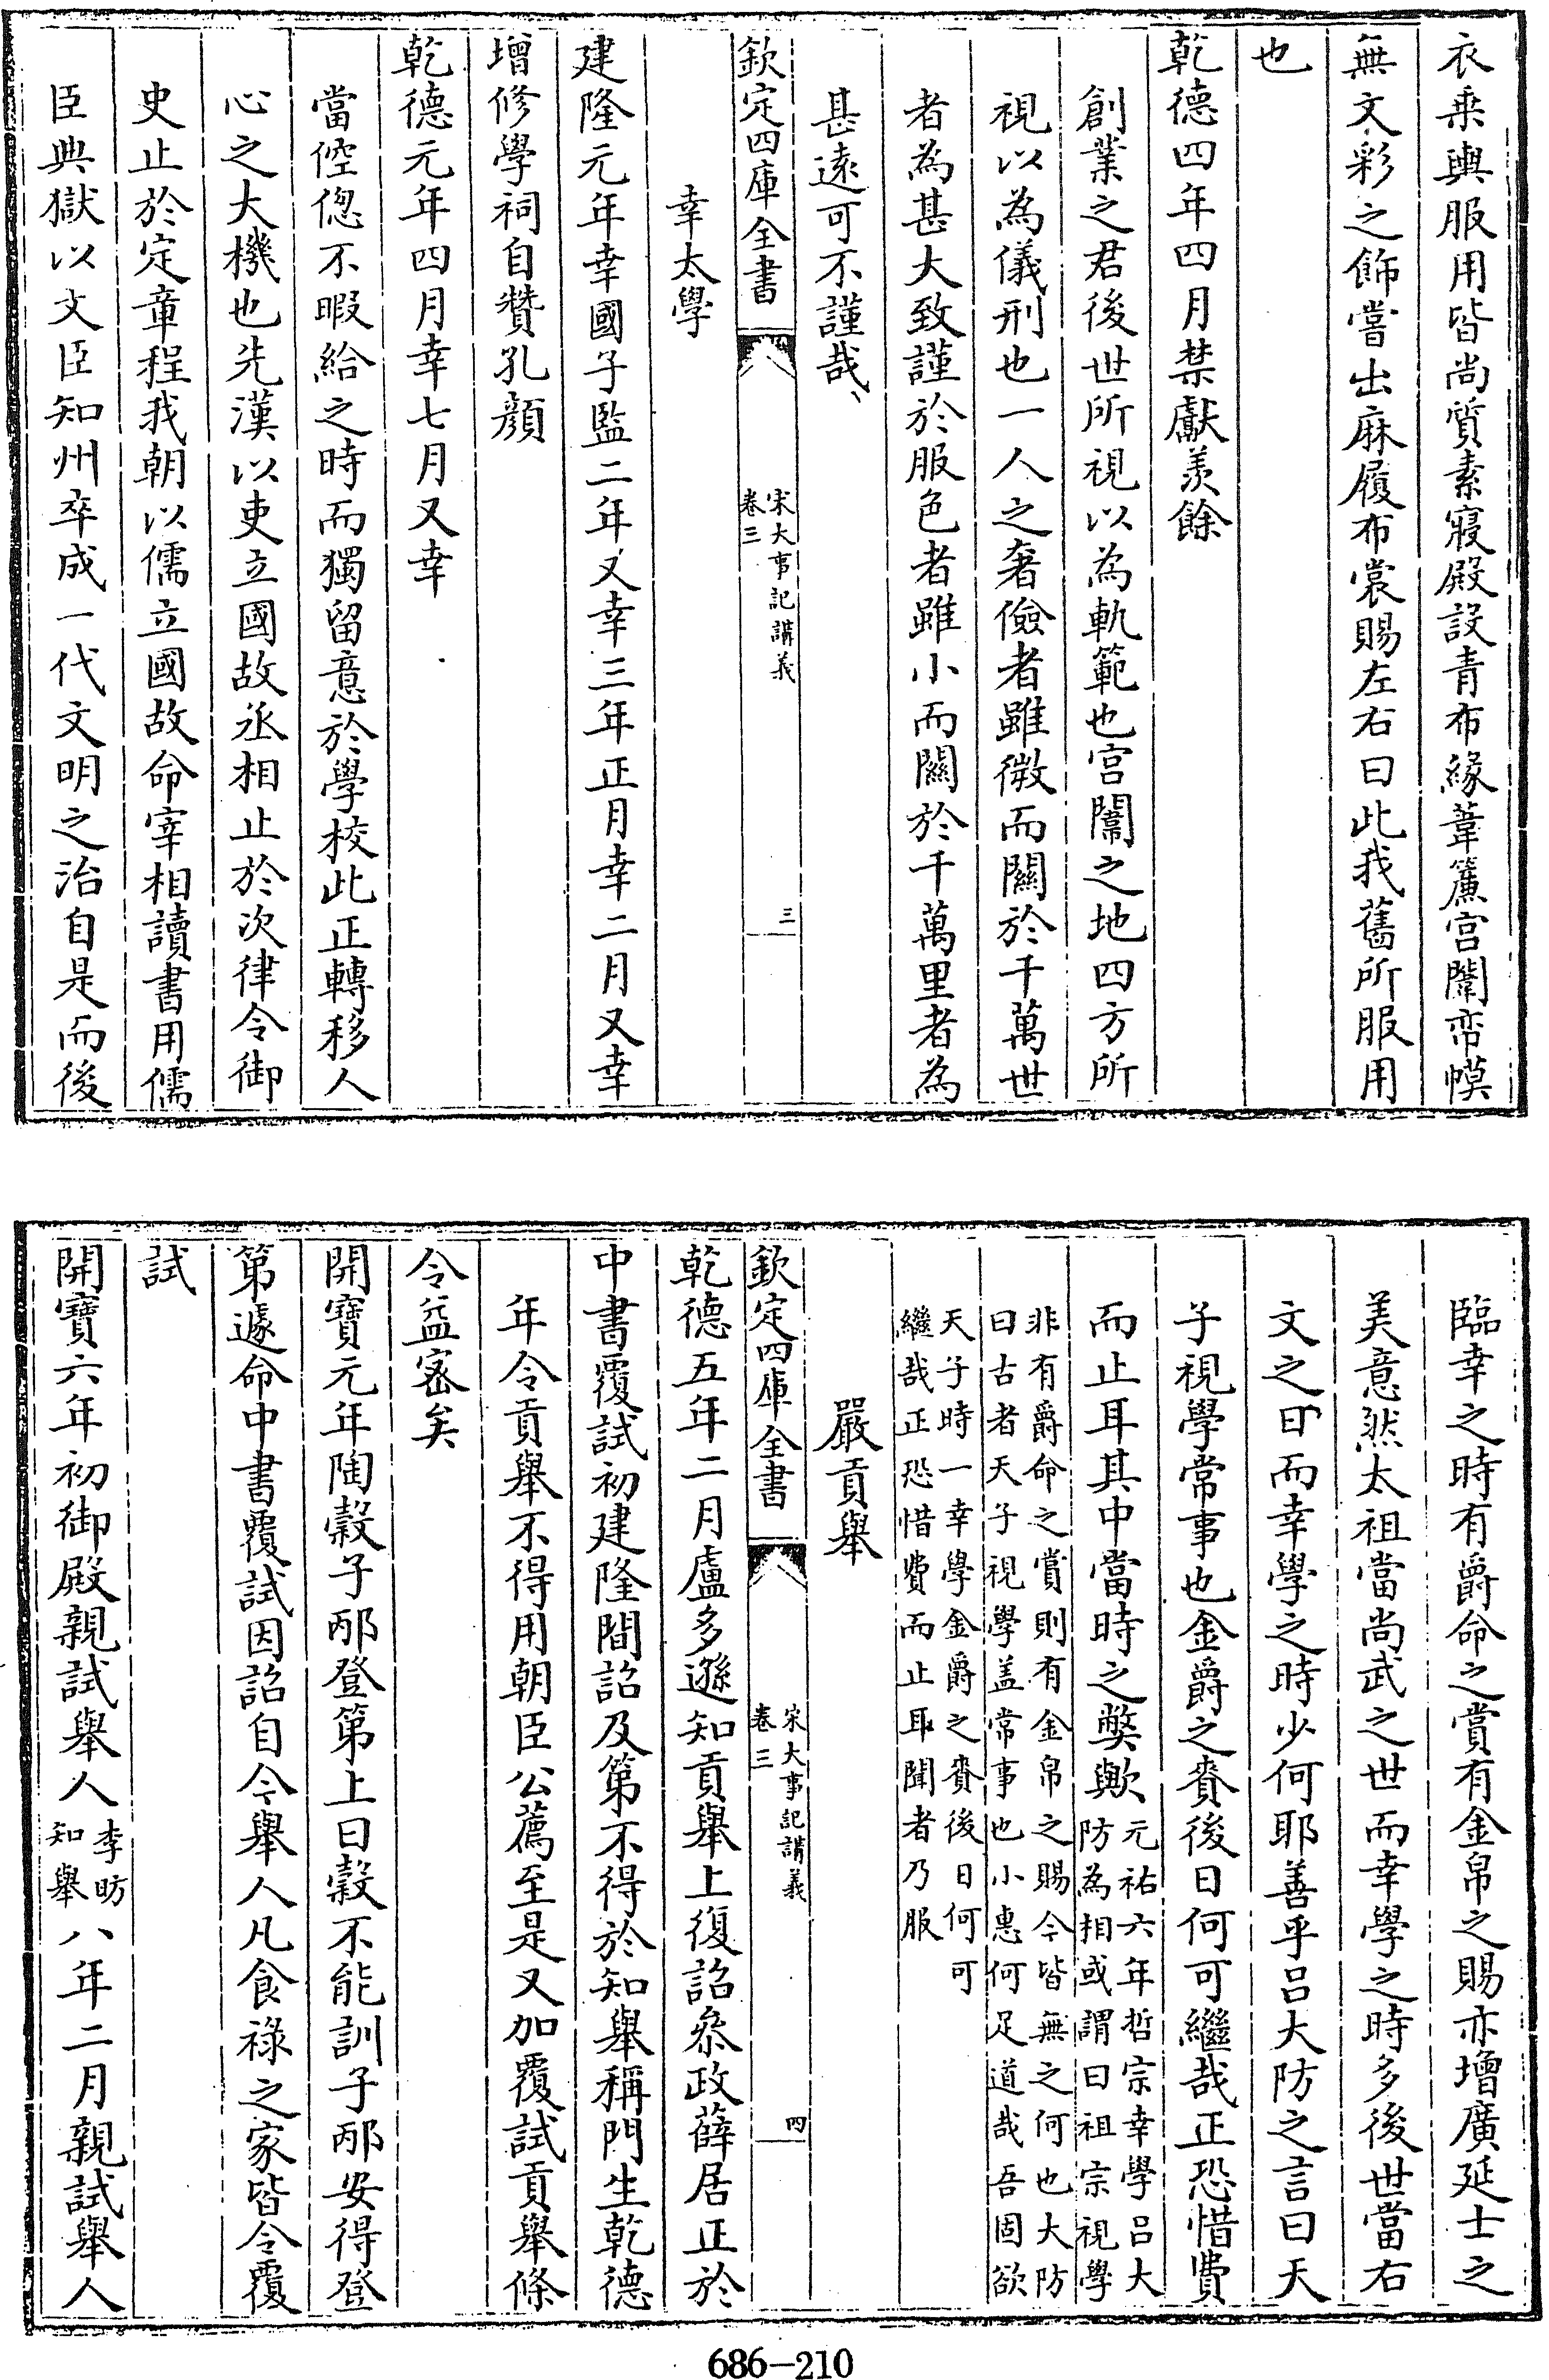 衣乗輿服用皆尚質素寢殿設青布緣葦簾宫闈帟幙
無文彩之飾嘗出麻履布裳賜左右曰此我舊所服用
也
乾德四年四月禁獻羨餘
創業之君後世所視以為軌範也宫闈之地四方所
視以為儀刑也一人之奢儉者雖微而關於千萬世
者為甚大致謹於服色者雖小而關於千萬里者為
甚遠可不謹哉
欽定四庫全書
宋大事記講義
卷三
三
幸太學
建隆元年幸國子監二年又幸三年正月幸二月又幸
增修學祠自贊孔顔
乾德元年四月幸七月又幸
當倥偬不暇給之時而獨留意於學校此正轉移人
心之大機也先漢以吏立國故丞相止於次律令御
史止於定章程我朝以儒立國故命宰相讀書用儒
臣典獄以文臣知州卒成一代文明之治自是而後
臨幸之時有爵命之賞有金帛之賜亦增廣延士之
美意然太祖當尚武之世而幸學之時多後世當右
文之日而幸學之時少何耶善乎吕大防之言曰天
子視學常事也金爵之賚後日何可繼哉正恐惜費
而止耳其中當時之弊歟
元祐六年哲宗幸學吕大
防為相或謂曰祖宗視學
非有爵命之賞則有金帛之賜今皆無之何也大防
曰古者天子視學盖常事也小惠何足道哉吾固欲
天子時一幸學金爵之賚後日何可
繼哉正恐惜費而止耳聞者乃服
嚴貢舉
欽定四庫全書
宋大事記講義
卷三
四
乾德五年二月盧多遜知貢舉上復詔叅政薛居正於
中書覆試初建隆間詔及第不得於知舉稱門生乾德
年令貢舉不得用朝臣公薦至是又加覆試貢舉條
令益密矣
開寶元年陶穀子邴登第上曰穀不能訓子邴安得登
第遽命中書覆試因詔自今舉人凡食祿之家皆令覆
試
開寶六年初御殿親試舉人
李昉
知舉
八年二月親試舉人
686-210